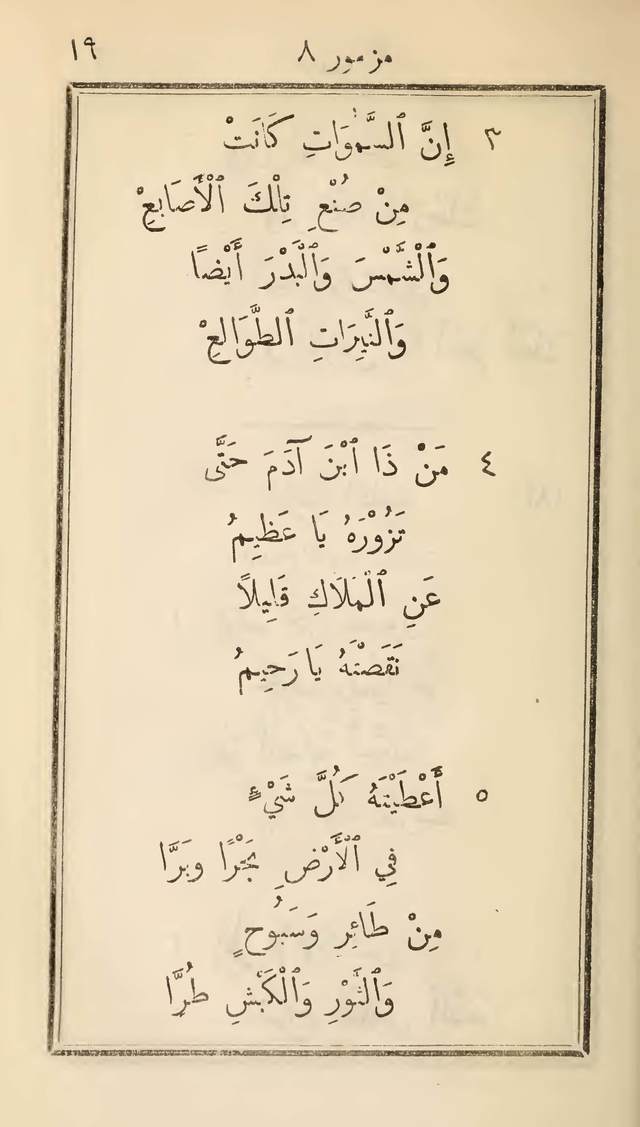 مزمور ٨ ١٩
٣ إِنَّ ٱلسَّمٰوَاتِ كَانَتْ
مِنْ صُنْعِ تِلْكَ ٱلْأَصَابِعْ
وَٱلْشَّمْسَ وَٱلْبَدْرَ أَيْضًا
وَٱلنَّيِّرَاتِ ٱلطَّوَالِعْ
٤ مَنْ ذَا ٱبْنَ آدَمَ حَتَّى
تَزُوْرَهُ يَا عَظِيمُ
عَنِ ٱلْمَلَاكِ قَلِيلًا
نَقَصْتَهُ يَا رَحِيمُ
٥ أَعْطَيْتَهُ كُلَّ شَيْءٍ
فِي ٱلْأَرْضِ بَحْرًا وبَرَّا
مِنْ طَائِرٍ وَسَبُوحٍ
وَٱلثَّوْرِ وَٱلْكَبْشِ طُرَّا